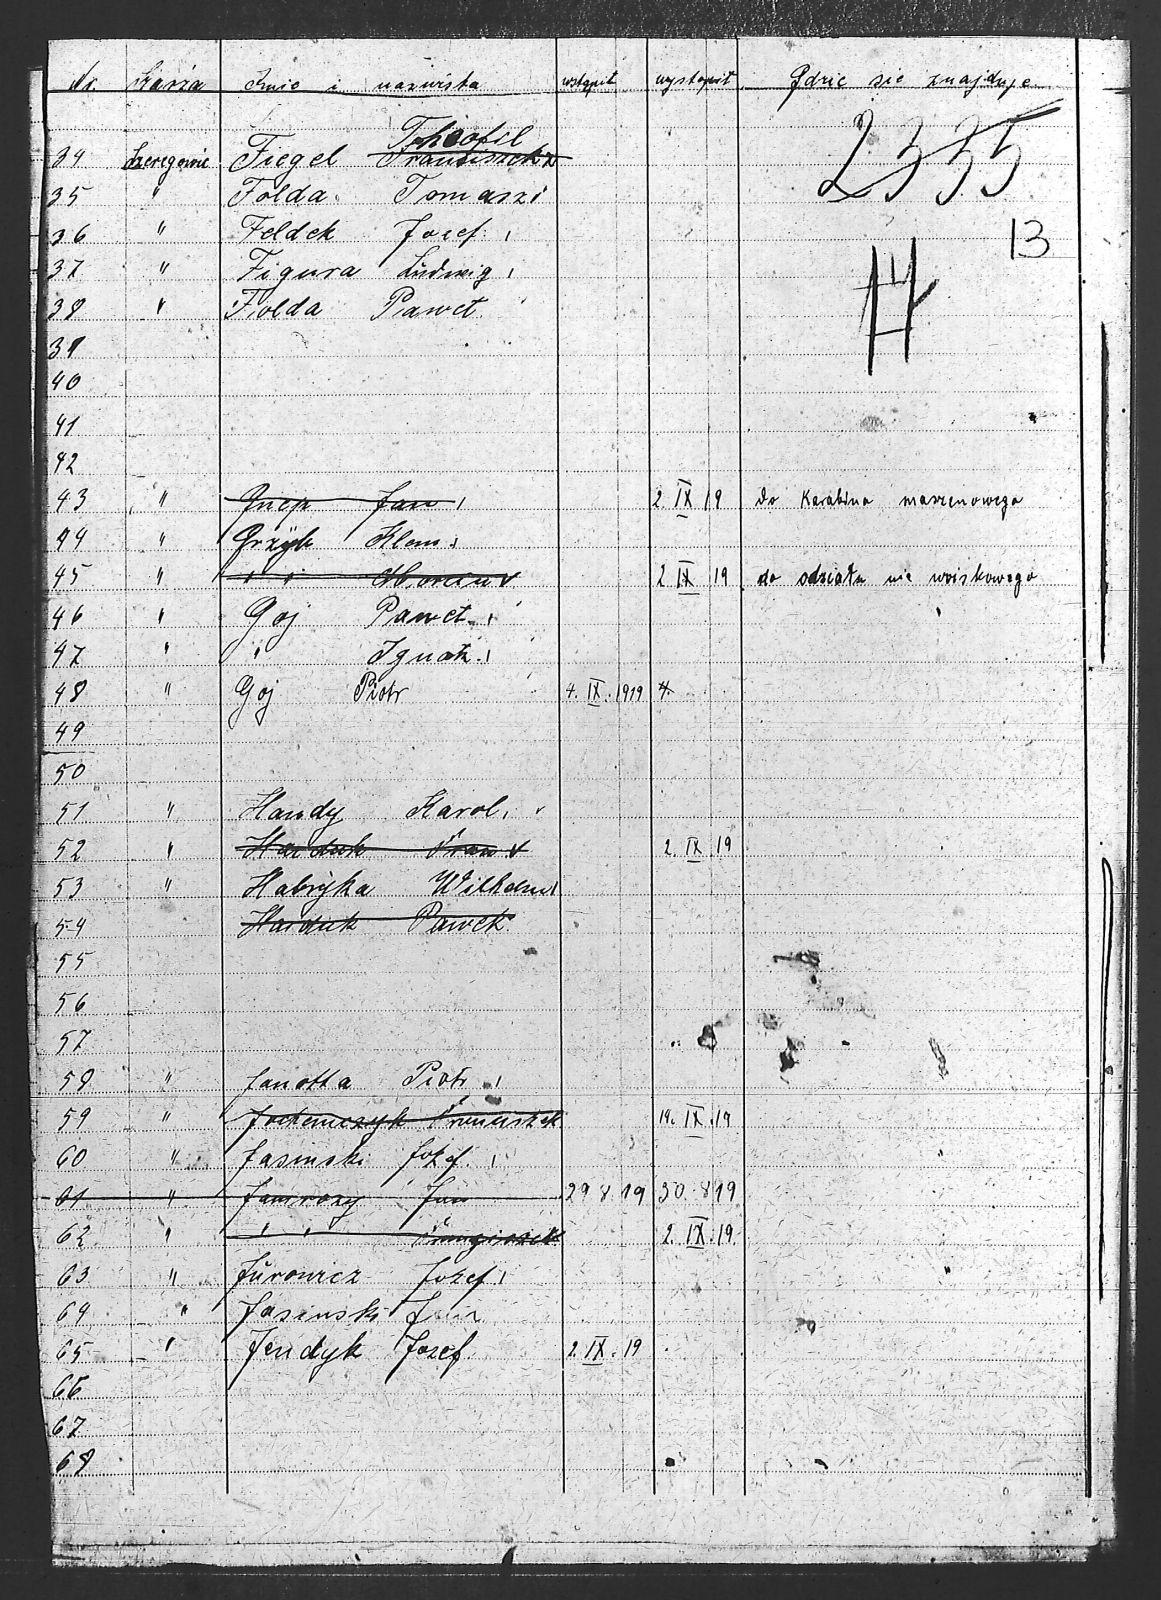 Nr. Szarża Imie i nazwisko wstąpił wystąpił Gdzie sie znajduje
Theofil
34 Szeregowic Fiegel Franciszek
2335
35 " Folda Tomasz
36 " Feldek Josef
13
37 " Figura Ludwig
38 " Folda Paweł
H
39
40
41
42
43 " Gnep Jan 2. IX 19 do Karabina maszenowego
44 " Grzÿb Klem.
45 " " " Marcin 2 IX 19 do odziału nie woiskowego
46 " Goj Paweł
47 " " Ignatz
48 " Goj Piotr 4. IX. 1919 4.
49
50
51 " Handy Karol
52 " Harduk Fran 2. IX. 19
53 " Habryka Wilhelm
54 Harduk Pawek
55
56
57
58 " Janotta Piotr
59 " Jochemczyk Franciszek 19. IX. 19
60 " Jasinski Jozef
61 " Jamrozy Jan 29 8 19 30. 8 19
62 " " " Frangiszek 2. IX. 19
63 " Jurowicz Jozef
64 " Jasinski
65 " Jendyk Jozef 2. IX. 19
66
67
68